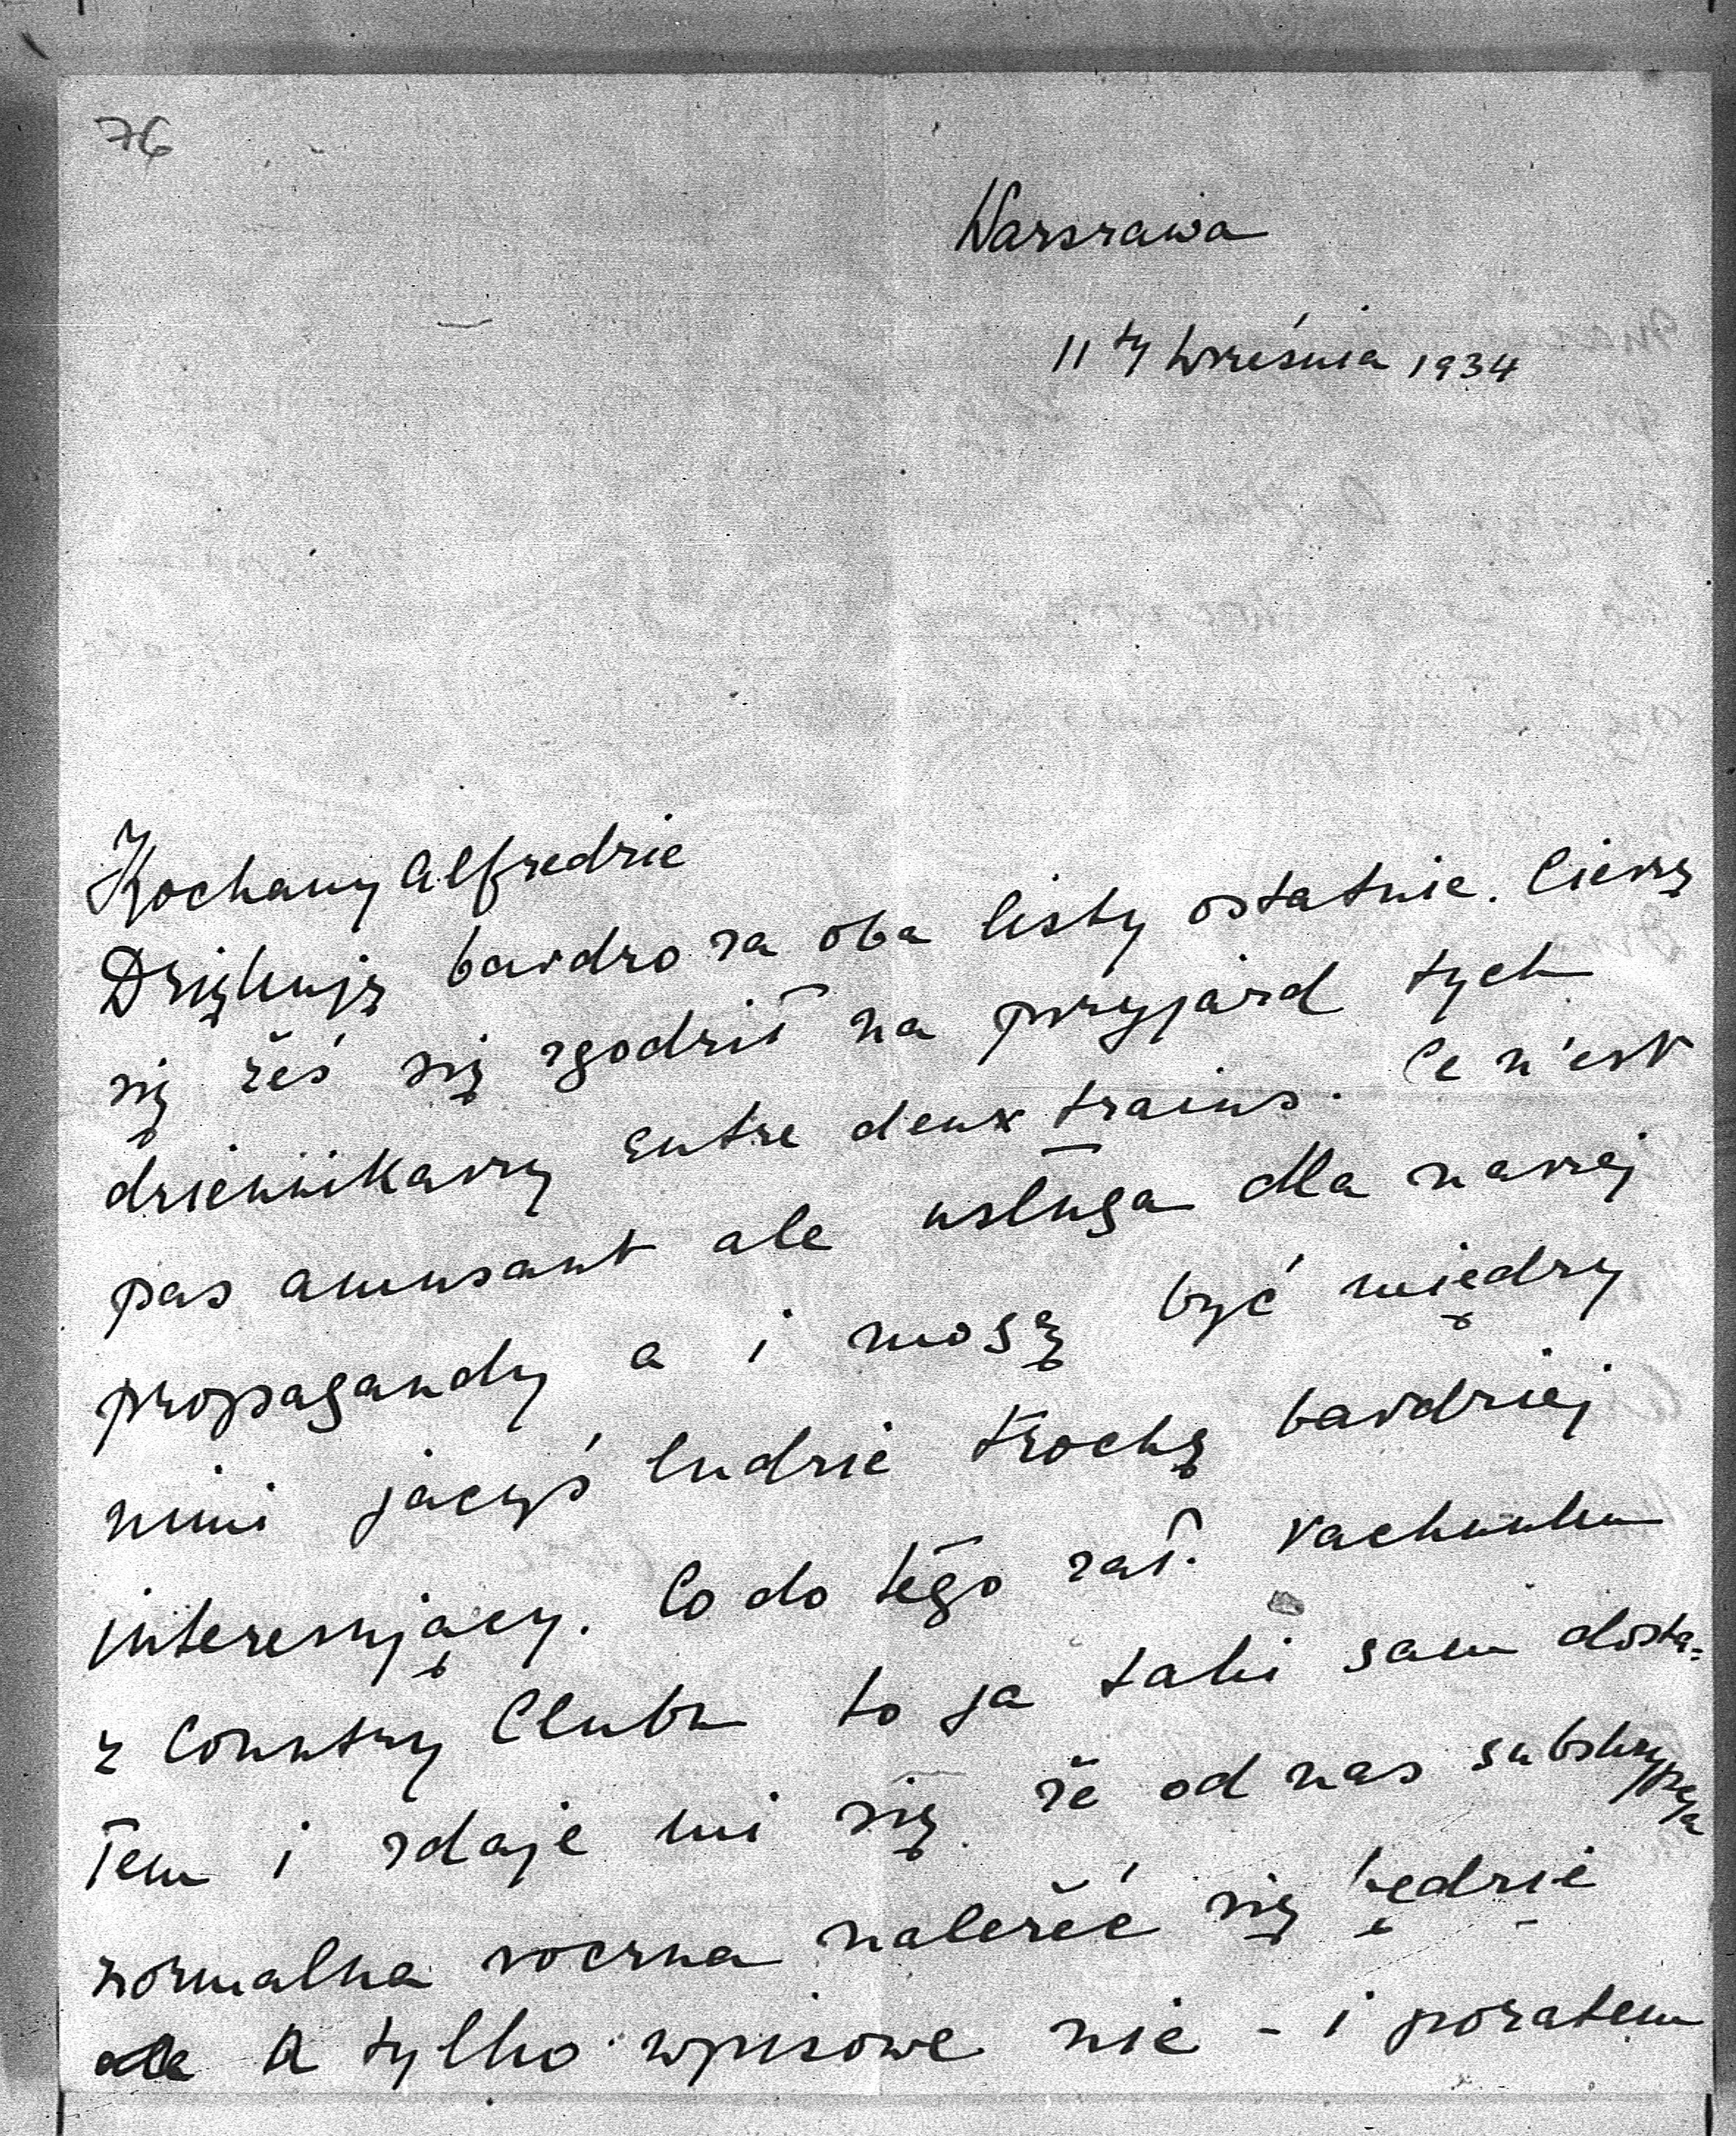 76
Warszawa
11ty Września 1934
Kochany Alfredzie
Dziękuję bardzo za oba listy ostatnie. Cieszę
się żeś się zgodził na przyjazd tych
dziennikarzy entre deux trains. Ce n'est
pas amusant ale usługa dla naszej
propagandy a i mogą być między
nimi jacyś ludzie trochę bardziej
interesujący. Co do tego zał. rachunku
z Country Clubu to ja taki sam dosta=
łem i zdaje mi się że od nas subskrypcja
normalna roczna należeć się będzie
ale a tylko wpisowe nie - i pozatem